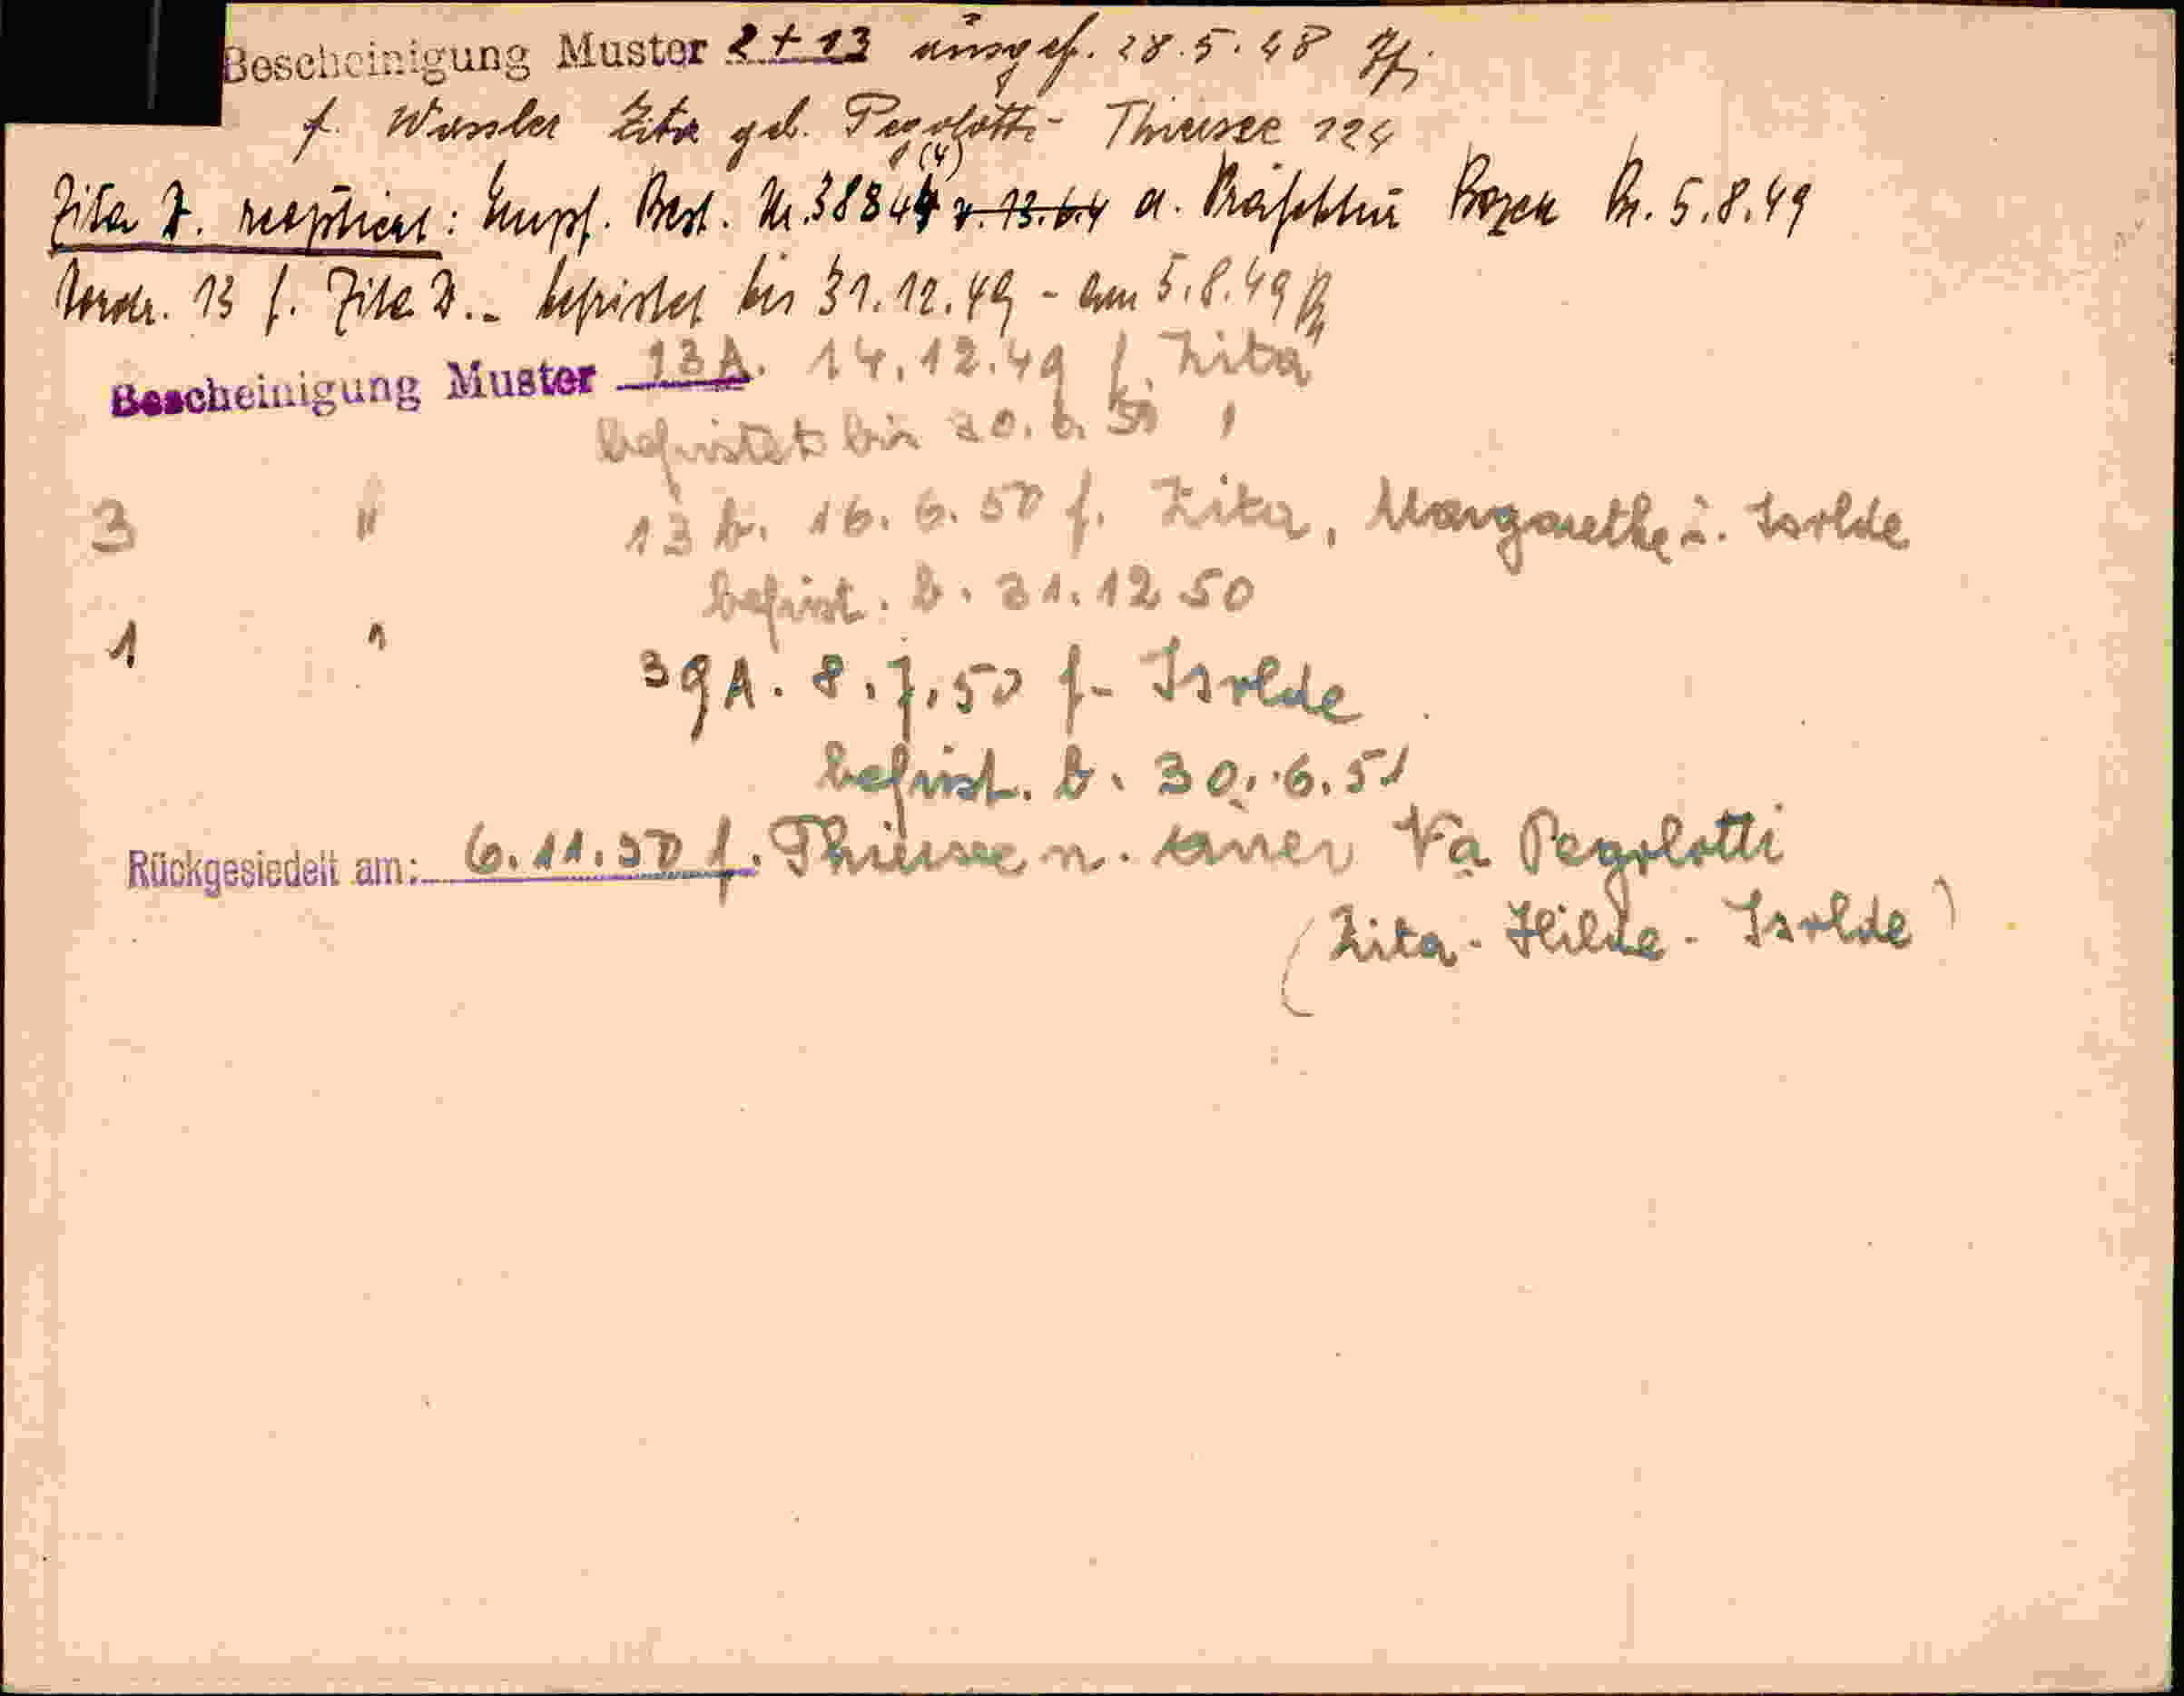 Bescheinigung Muster 2 + 13 ausgef. 28.5.48
f. Wassler Zita geb. Pegolotti - Thiersee 124
Zita D. : Empf. Best. Nr. 38844 (4) v. 13.6.4 a. Präfektur Bozen 5.8.49
Vordr. 13 f. Zita D. - befristet bis 31.12.49 - am 5.8.49
Bescheinigung Muster 13 A. 14.12.49 f. Zita
befristet bis 30.6.50
3 " 13 b. 16.6.50 f. Zita, Margarethe u. Isolde
befrist. b. 31.12 50
1 " 39 A. 8.7.50 f. Isolde
befrist. b. 30.6.51
Rückgesiedelt am: 6.11.50 f. Thiersee n. Pegolotti
(Zita - Hilde - Isolde)